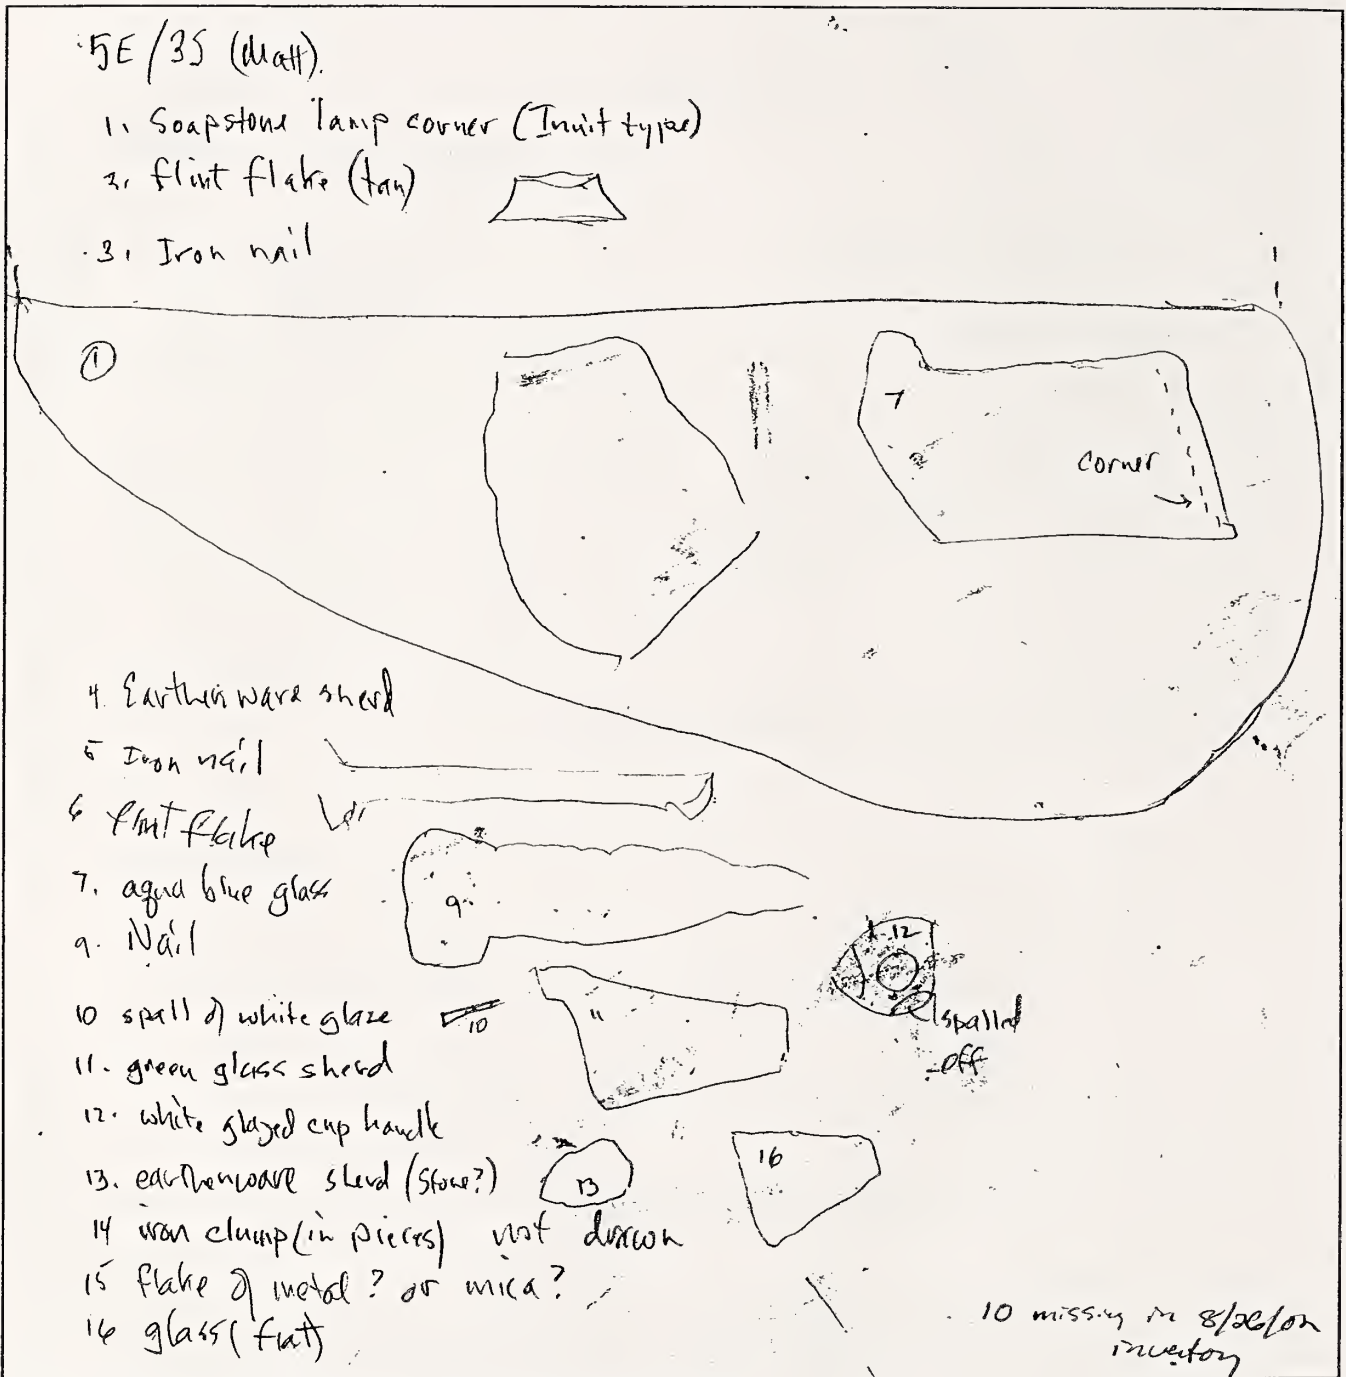 5E/3S (Matt).
1. Soapstone lamp corner (Inuit type)
2. flint flake (tan)
3. Iron nail
1
7
corner
4. Earthenware sherd
5 Iron nail
6 flint flake
7. aqua blue glass
9. Nail
9
12
10 spall of white glaze
10
11
spalled
off
11. green glass sherd
12. white glazed cup handle
13. earthenware sherd (stone?)
13
16
14 iron clump (in pieces) not drawn
15 flake of metal? or mica?
16 glass (flat)
10 missing in 8/26/02
inventory